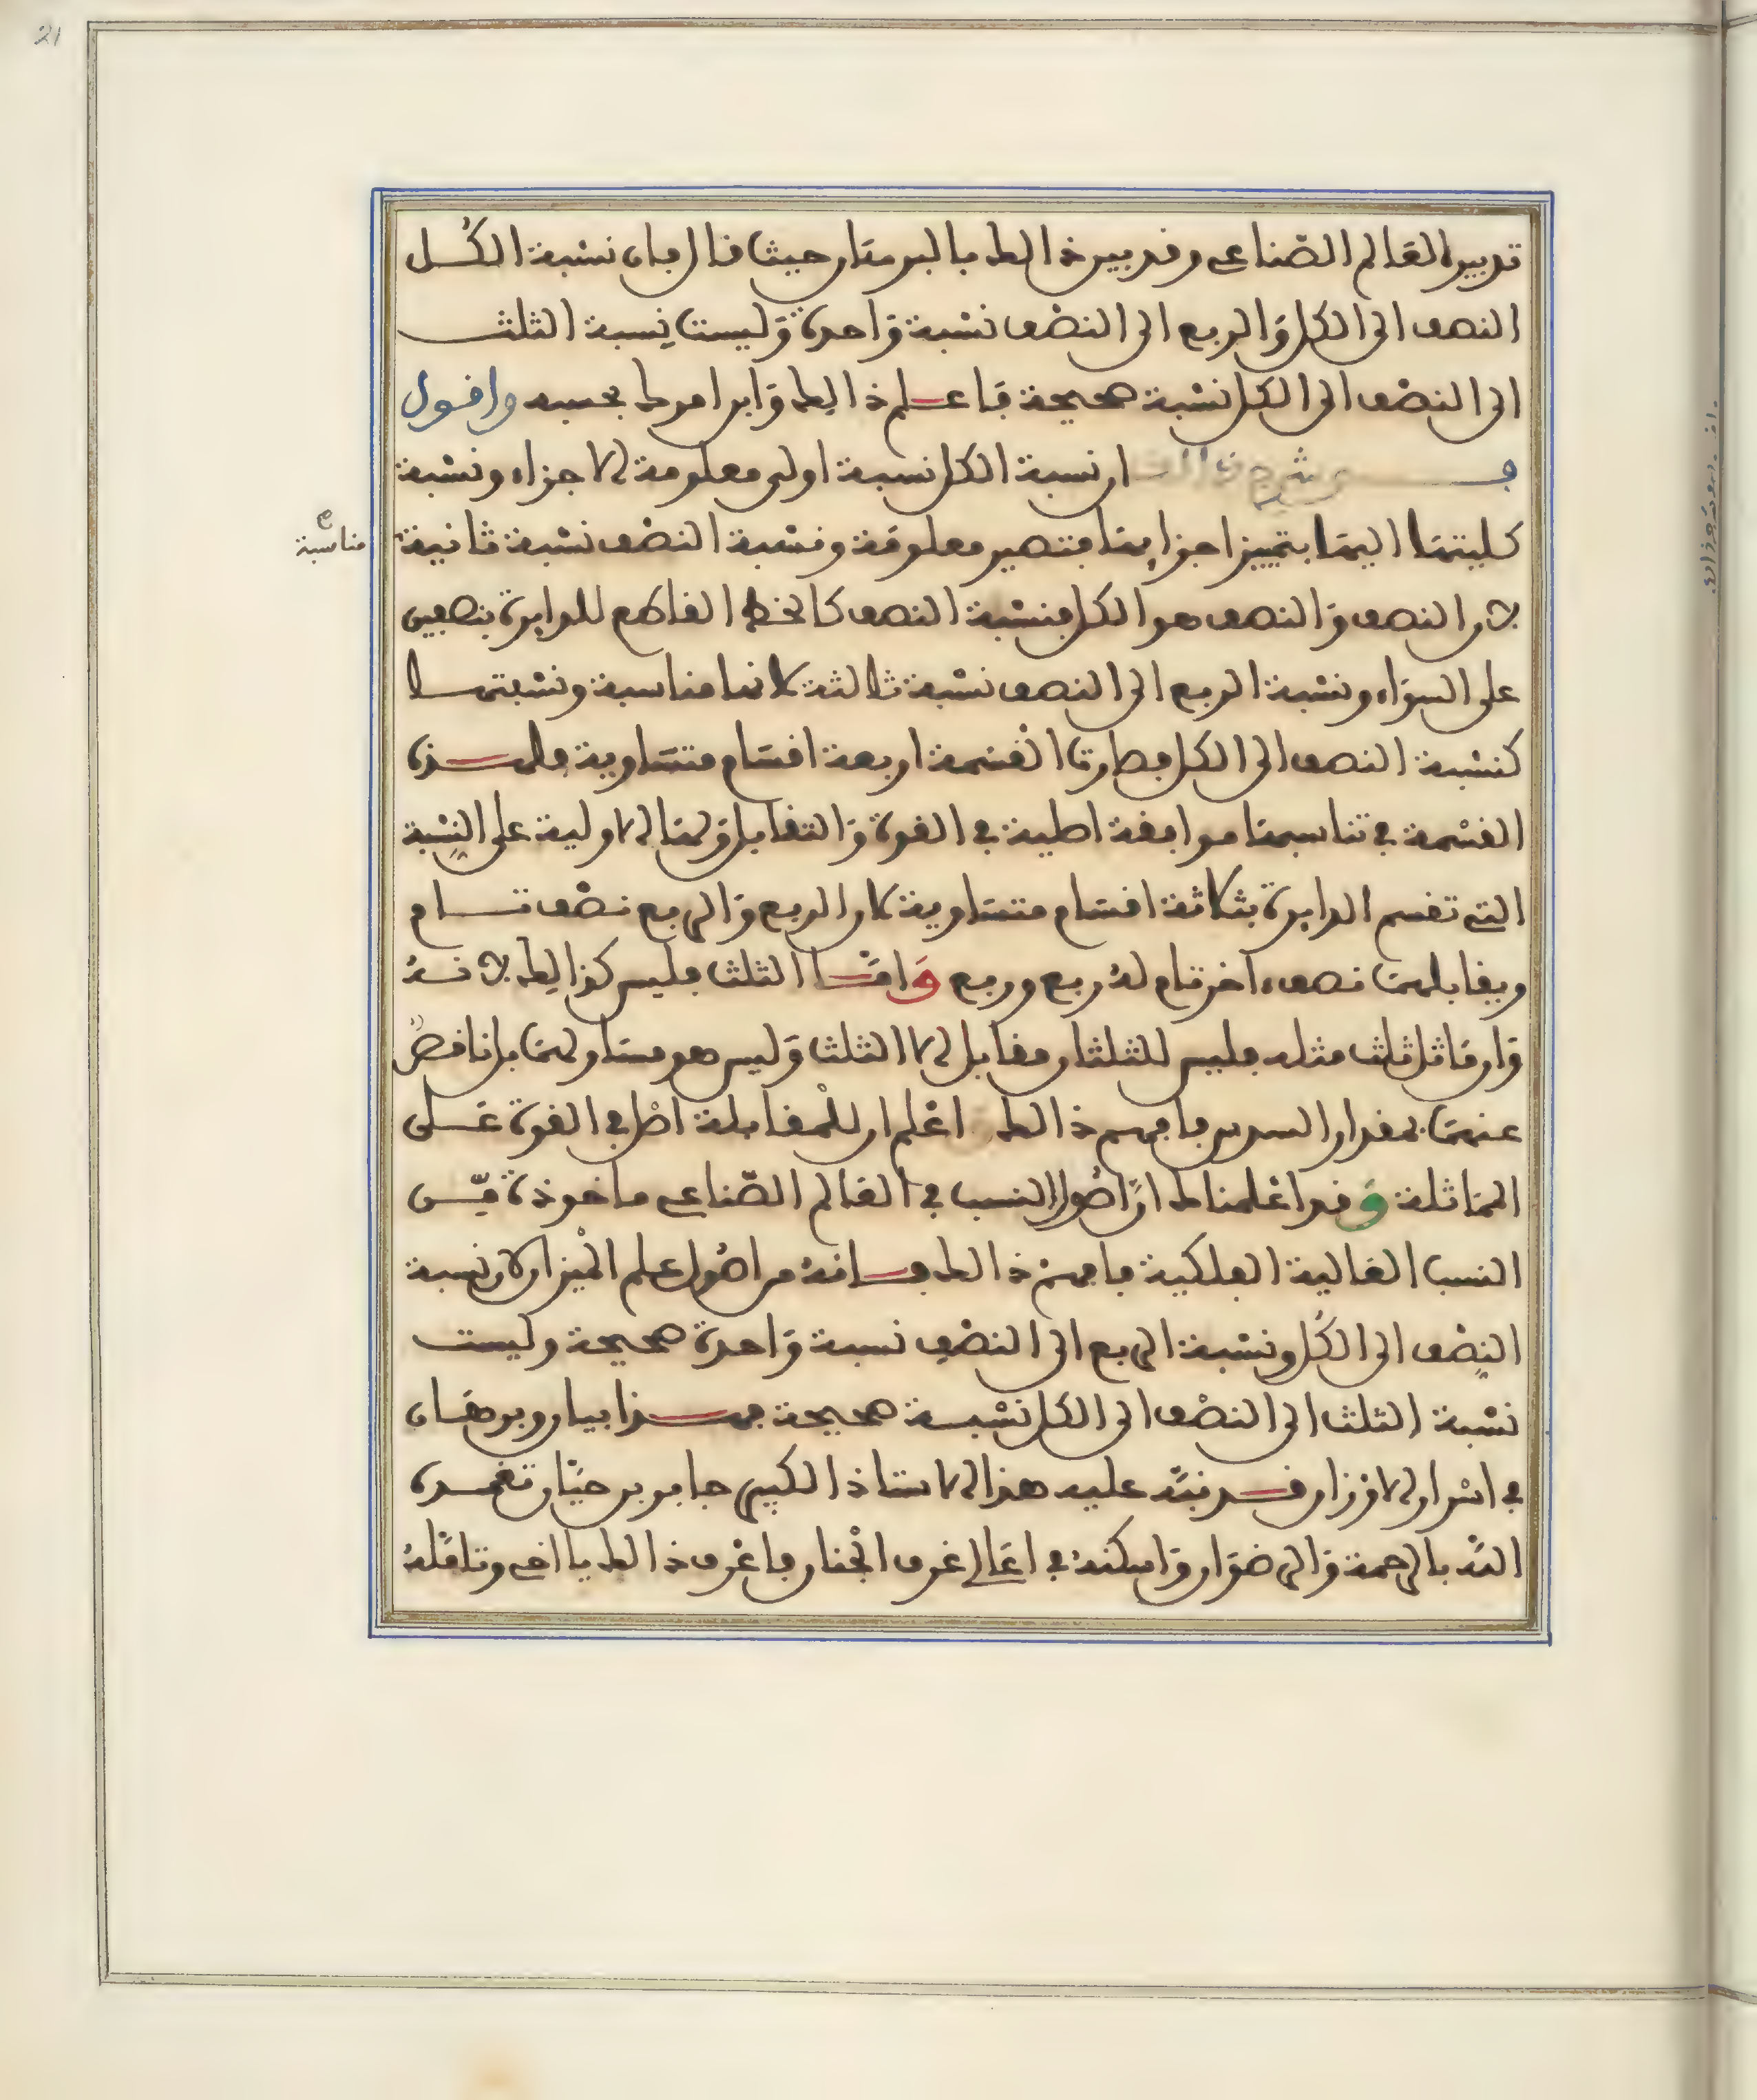 21
تدبير العالم الصّناعي وقد بين ذالك بالبرهان حيث قال فان نسبة الكُل
النصف الى الكل وَالربع الى النصْف نسْبة وَاحدة وَليست نِسبة الثلث
الى النصْف الى الكل نسْبة صحيحة فَاعلم ذالك وَابن امرك بحسبه واقول
في شرح ان نسبة الكل نسبة اولى معلومة الاجزاء ونسْبة
كليتها اليها بتمييز اجزايها فتصير معلومَة ونسْبة النصْف نسْبة ثانية
مناسبة
لان النصف وَالنصف هو الكل فنسْبة النصف كالخط القاطع للدايرة بنصفين
على السوَاء ونسْبة الربع الى النصف نسْبة ثالثة لانها مناسبة ونسْبتها
كنسْبة النصف الى الكل فصارت القسْمة اربعة اقسَام متسَاوية فلهذه
القسْمة في تناسبها موافقة اصلية في القوة وَالتقابل وَلها الاولية على النِسْبة
التي تقسم الدايرة بثلاثة اقسَام متسَاوية لان الربع وَالربع نصْف تام
ويقابلهمَا نصف ءاخر تام لهُ ربع وربع وَامّا الثلث فليس كذالك لانهُ
وَان مَاثل ثلث مثله فليس للثلثان مقابل الا الثلث وَليس هو مسَاو لهمَا بل ناقصٌ
عنهمَا بمقدار السدس فافهم ذالك اعْلم ان للْمقابلة اصْل في القوة عَلى
المَاثلة وَقد اعْلمناك انّ اصُول النسب في العَالم الصّناعي ماخوذة مِّن
النسب العَالية الفلكية فافهمْ ذالك فانهُ من اصُول علم الْميزان لان نسبة
النِصْف الى الكُل ونسْبة الربع الى النصْف نسبة وَاحدة صحيحة وليست
نسْبة الثلث الى النصْف الى الكل نسْبة صحيحة فهذا بيان وبرهَان
في اسْرار الاوزان قد نبّه عليه هذا الاستاذ الكبير جابر بن حيَّان تغمده
اللَّه بالرحمة وَالرضوَان وَاسكنهُ في اعَالي غرف الْجنان فاعْرف ذالك يا اخي وتامَّلهُ